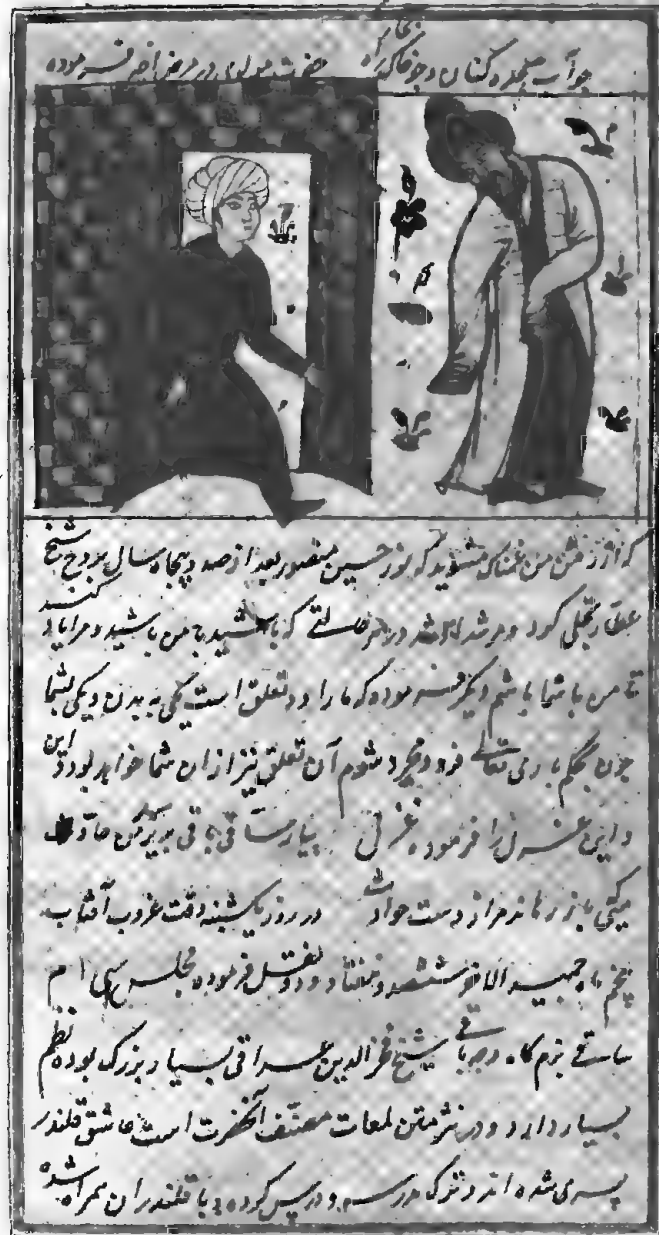 چو آب سجده کنان و چو خاک راه حضرت مولوی در مرض اخیر فرموده
که از رفتن من غمناک مشوید که نور حسین منصور بعد از صد و پنجاه سال بروح شیخ
عطار تجلی کرد و مرشد او شد در هر حالتی که باشید با من باشید و مرا یاد کنید
تا من با شما باشم دیگر فرموده که ما را دو تعلق است یکی به بدن و یکی بشما
چون بحکم باری تعالی فرد و مجرد شوم آن تعلق نیز از آن شما خواهد بود
و این غزل را فرموده غزل بیار ساقی باقی
میکنی باز رهاند مرا از دست حوادث در روز یکشنبه وقت غروب آفتاب
پنجم ماه جمید الاخر ششصد و هفتاد و دو نقل فرموده مجلس سی ام
ساقی بزم گاه شیخ فخرالدین عراقی بسیار بزرگ بوده نظم
بسیار دارد و در نثر متن لمعات مصنف آنحضرت است عاشق قلندر
پسری شده اند و ترک مدرسه و درس کرده و با قلندران همراه شده